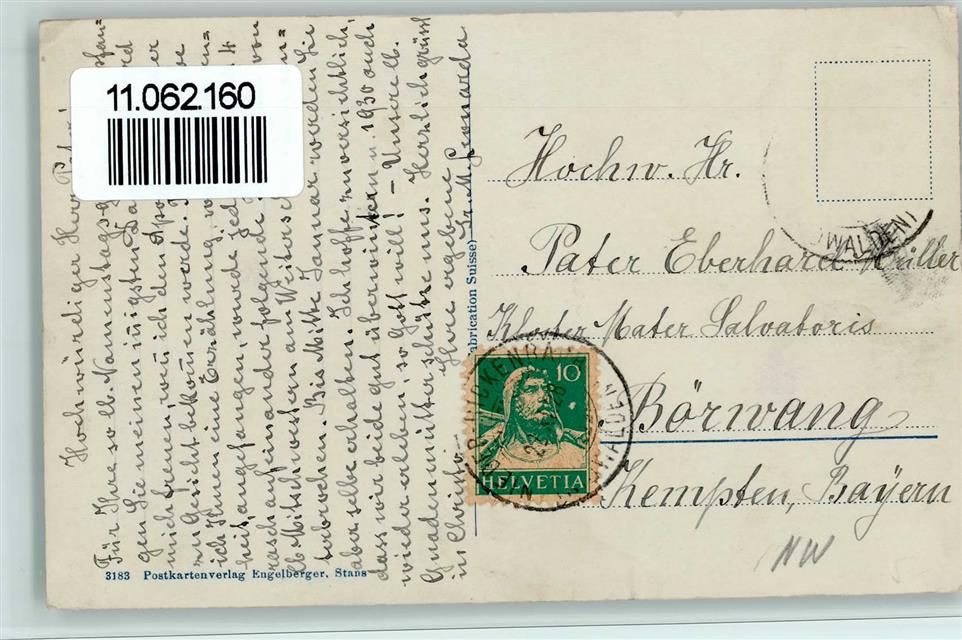 11.062.160
Hochwürdiger Herr Pater!
Für Ihre so lb. Namenstags
gen Sie meinen innigsten
mich freuen, wenn ich den
zu Gesicht bekäme werde.
ich Ihnen eine Erzählung,
heit, angefangen, wurde jed
rasch aufeinander folgende
lb. Mitschwestern am Weitersch
terbrochen. Bis Mitte Januar werden Sie
aber selbe erhalten. Ich hoffe zuversichtlich,
dass wir beide gut überwintern u. 1930 auch
wieder erleben, so Gott will! – Unsere lb.
Gnadenmutter schütze uns. Herzlich grüsst
in Christo Ihre ergebene
Sr. M. Leonarda
3183 Postkartenverlag Engelberger, Stans
Fabrication Suisse)
Hochw. Hr.
Pater Eberhard Müller
Kloster Mater Salvatoris
Börwang
Kempten, Bayern
10
HELVETIA
WALDEN)
NW